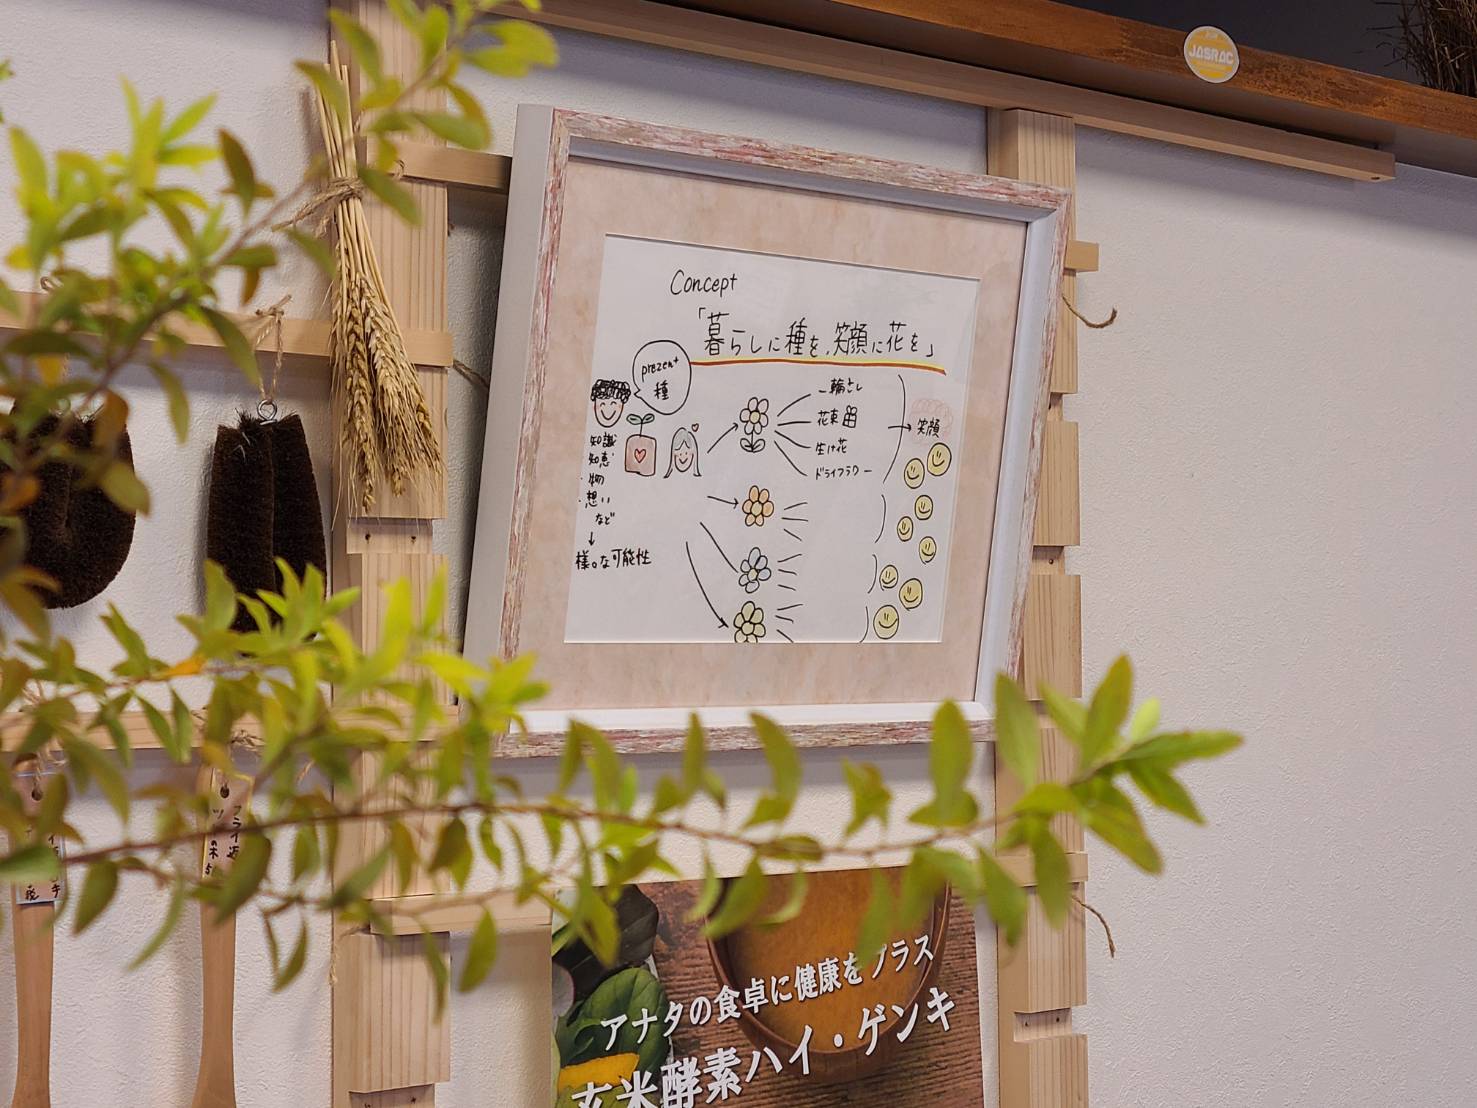 JASRAC
Concept
「暮らしに種を、笑顔に花を」
prezent
種
知識
知恵
・物
・想い
など
↓
様々な可能性
一輪さし
花束
生け花
ドライフラワー
→笑顔
アナタの食卓に健康をプラス
玄米酵素ハイ・ゲンキ